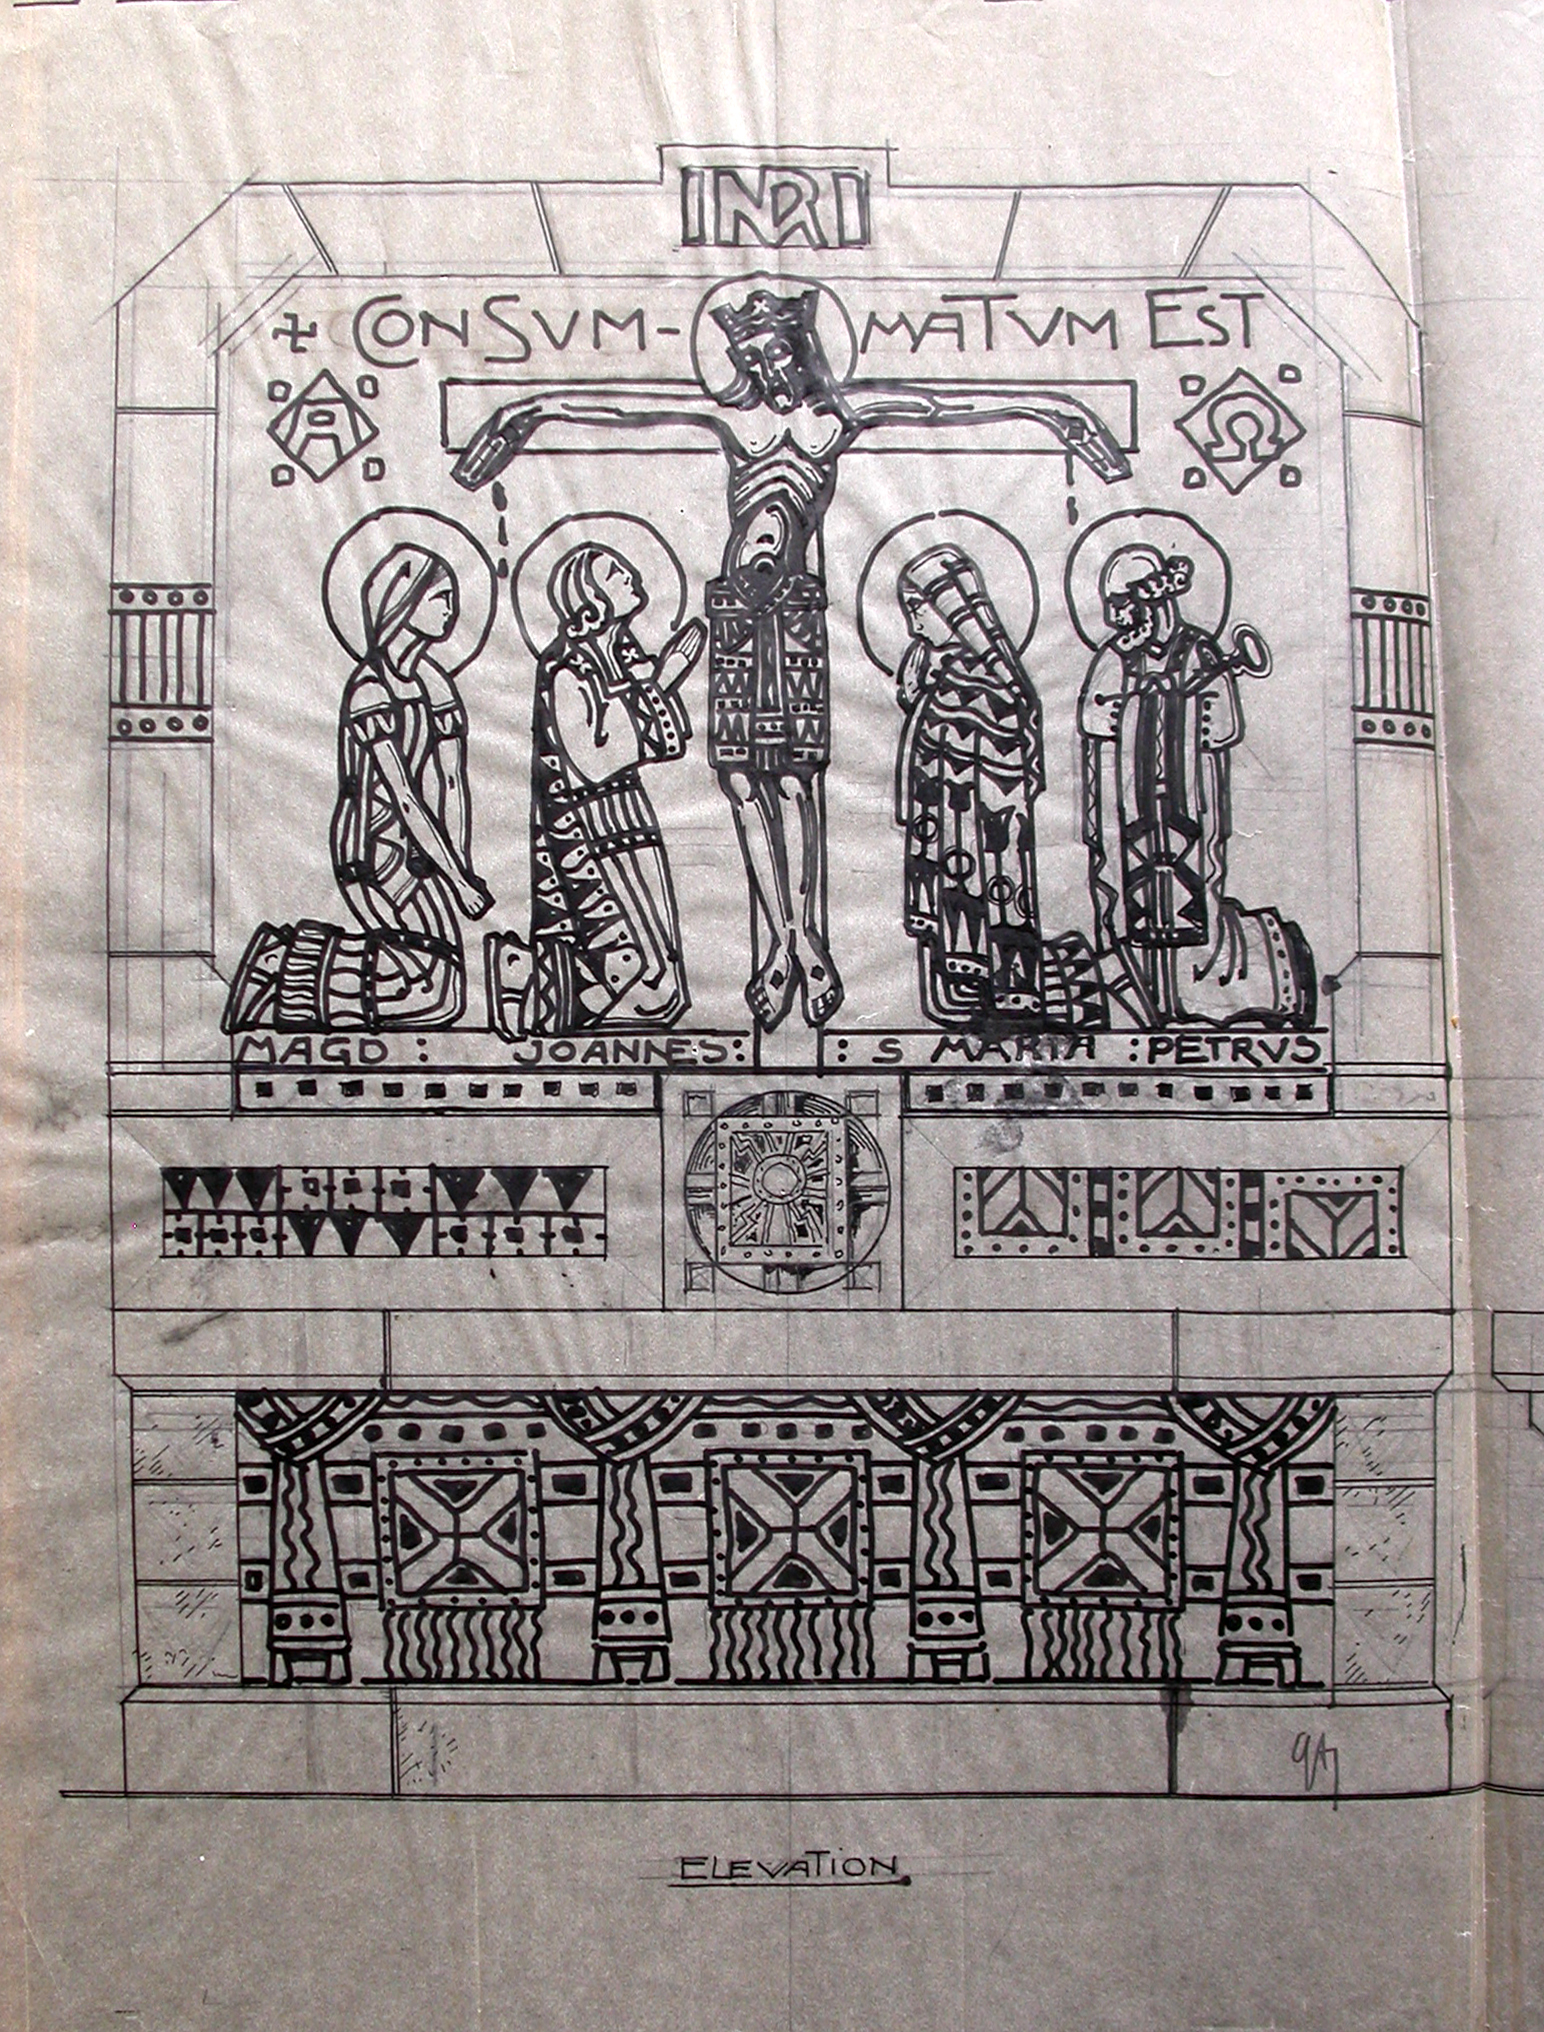 INRI
CONSUM-MATUM EST
A Ω
MAGD : JOANNES : : S MARIA : PETRVS
ELEVATION